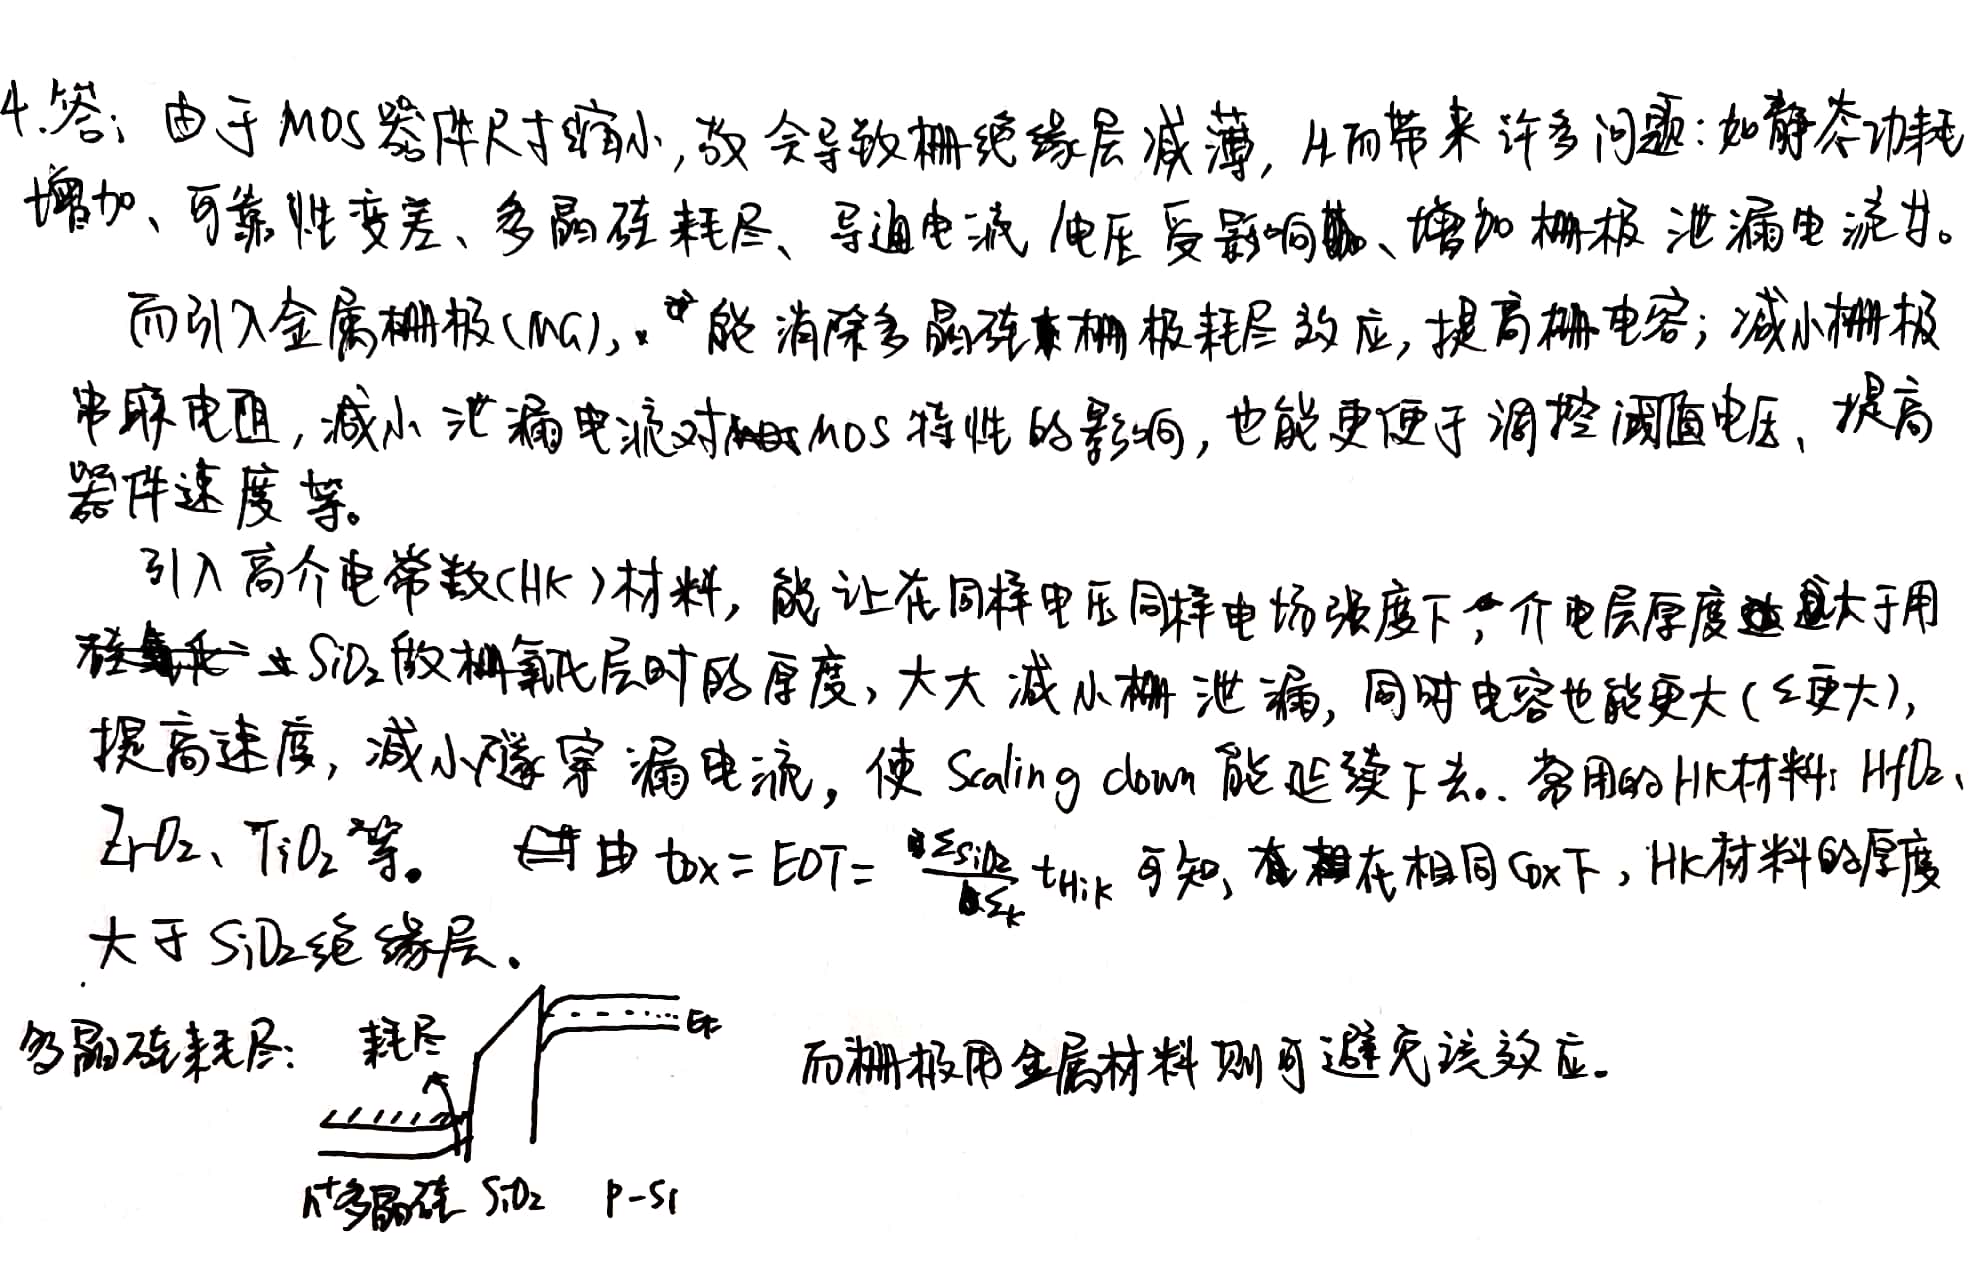 4.答：由于MOS器件尺寸缩小，故会导致栅绝缘层减薄，从而带来许多问题：如静态功耗
增加、可靠性变差、多晶硅耗尽、导通电流/电压受影响、增加栅极泄漏电流等。
而引入金属栅极(MG)，能消除多晶硅栅极耗尽效应，提高栅电容；减小栅极
串联电阻，减小泄漏电流对MOS特性的影响，也能更便于调控阈值电压、提高
器件速度等。
引入高介电常数(HK)材料，能让在同样电压同样电场强度下，介电层厚度远大于用
SiO₂做栅氧化层时的厚度，大大减小栅泄漏，同时电容也能更大(ε更大)，
提高速度，减小隧穿漏电流，使Scaling down能延续下去。常用的HK材料：HfO₂、
ZrO₂、TiO₂等。 由 tox = EOT = εSiO₂/εk tHik 可知，在相同Cox下，HK材料的厚度
大于SiO₂绝缘层。
多晶硅耗尽： 耗尽 EF 而栅极用金属材料则可避免该效应。
n⁺多晶硅 SiO₂ P-Si